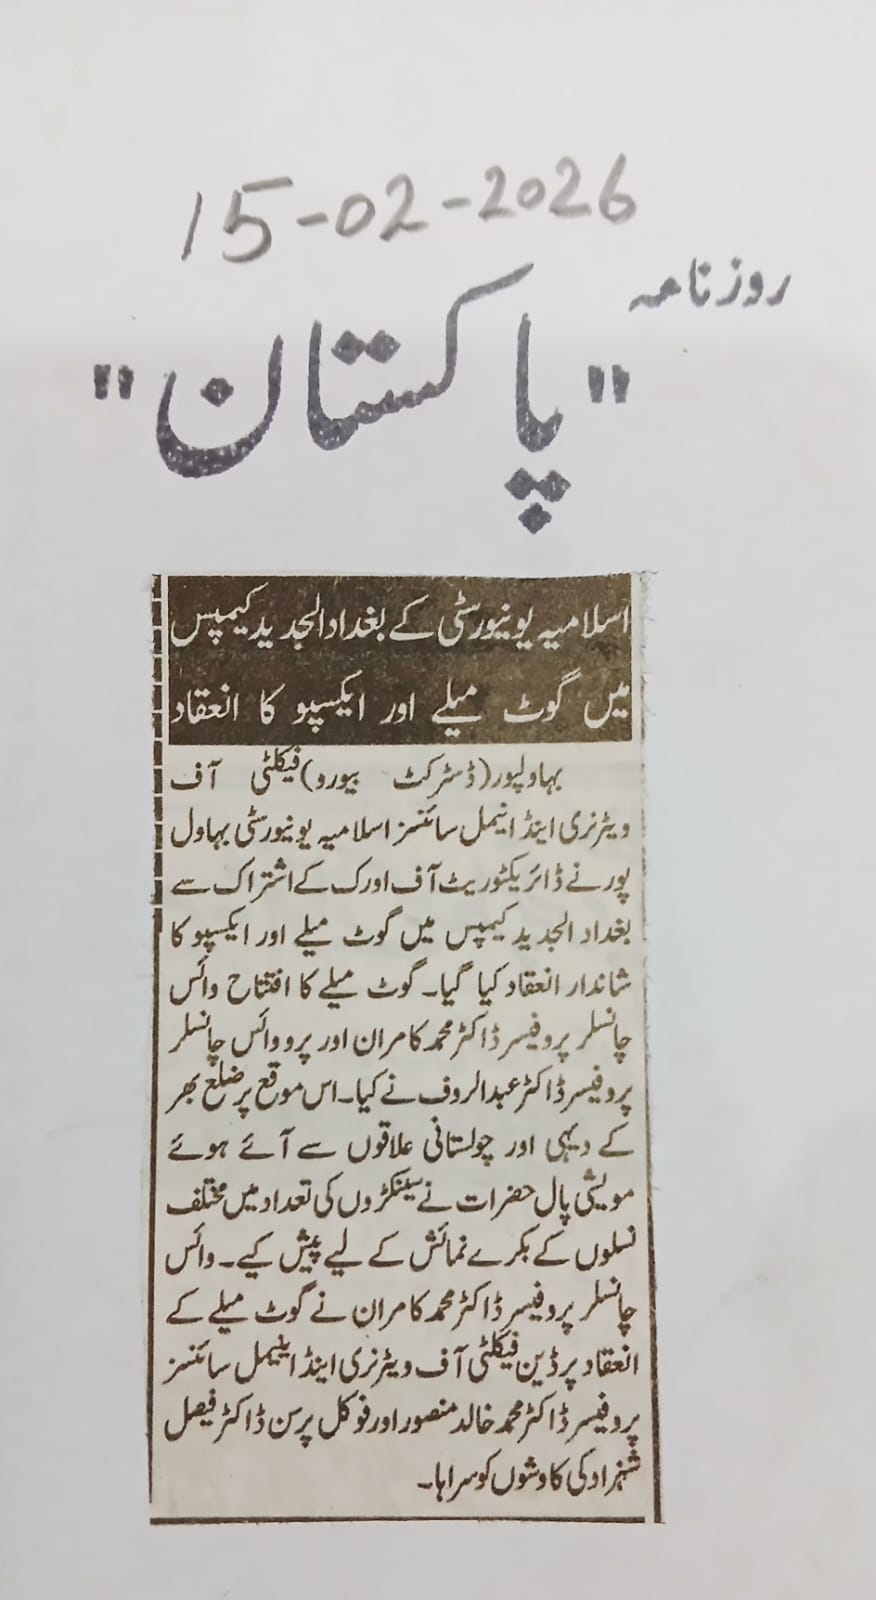 15-02-2026
روزنامہ
"پاکستان"
اسلامیہ یونیورسٹی کے بغداد الجدید کیمپس
میں گوٹ میلے اور ایکسپو کا انعقاد
بہاولپور(ڈسٹرکٹ بیورو)فیکلٹی آف
ویٹرنری اینڈ انیمل سائنسز اسلامیہ یونیورسٹی بہاول
پور نے ڈائریکٹوریٹ آف اورک کے اشتراک سے
بغداد الجدید کیمپس میں گوٹ میلے اور ایکسپو کا
شاندار انعقاد کیا گیا۔ گوٹ میلے کا افتتاح وائس
چانسلر پروفیسر ڈاکٹر محمد کامران اور پرو وائس چانسلر
پروفیسر ڈاکٹر عبدالروف نے کیا۔ اس موقع پر ضلع بھر
کے دیہی اور چولستانی علاقوں سے آئے ہوئے
مویشی پال حضرات نے سینکڑوں کی تعداد میں مختلف
نسلوں کے بکرے نمائش کے لیے پیش کیے۔ وائس
چانسلر پروفیسر ڈاکٹر محمد کامران نے گوٹ میلے کے
انعقاد پر ڈین فیکلٹی آف ویٹرنری اینڈ اینیمل سائنسز
پروفیسر ڈاکٹر محمد خالد منصور اور فوکل پرسن ڈاکٹر فیصل
شہزاد کی کاوشوں کو سراہا۔